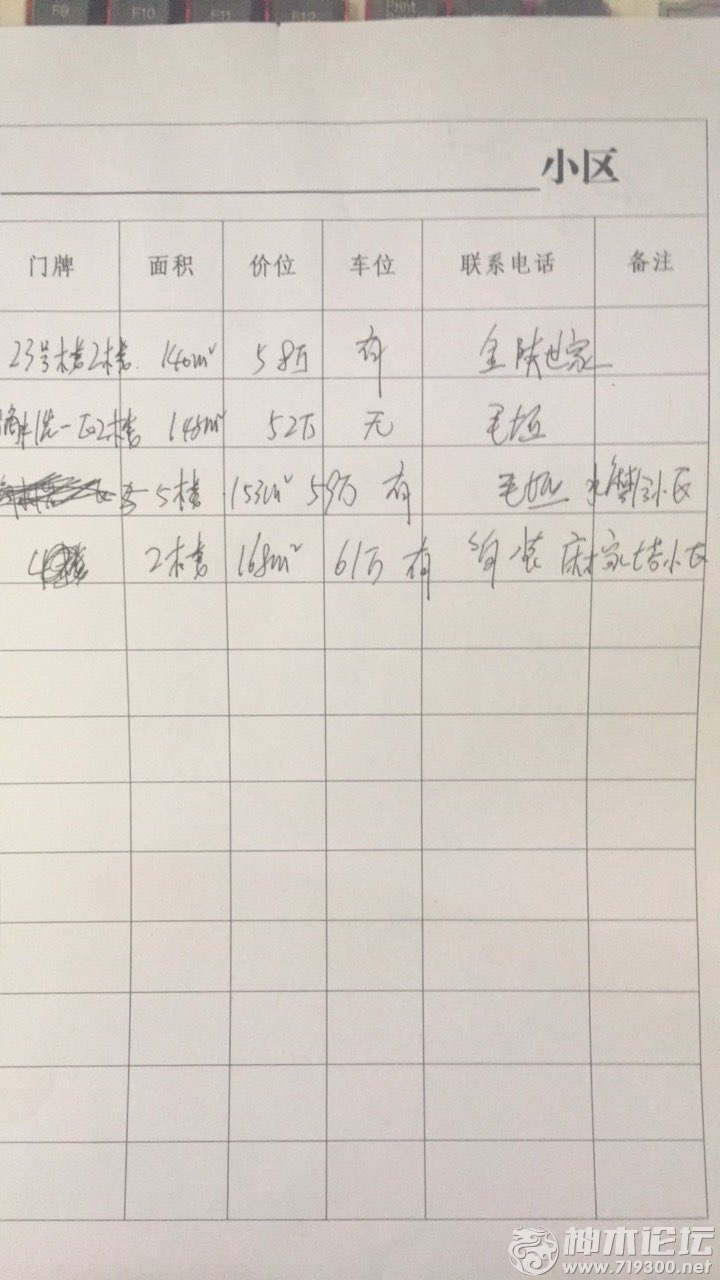 F9 F10 F11 F12 Print
小区
门牌 面积 价位 车位 联系电话 备注
23号楼2楼 140m² 58万 有 金陕世家
一区2楼 148m² 52万 无 毛坯
5楼 153m² 59万 有 毛坯 小区
2楼 168m² 61万 有 简装 小区
神木论坛
www.719300.net